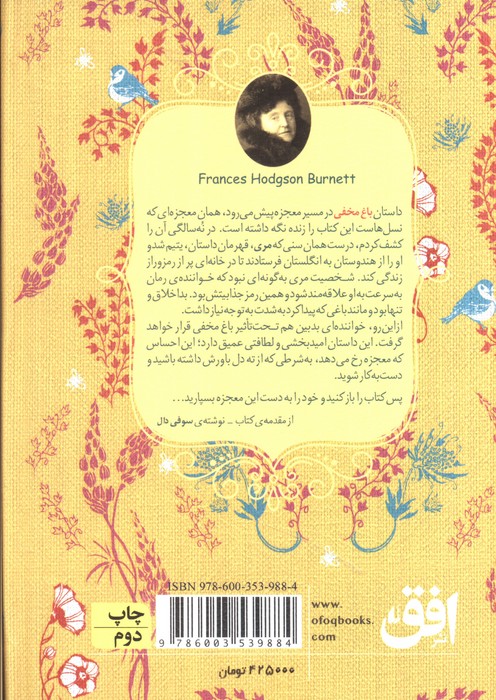 Frances Hodgson Burnett
داستان باغ مخفی در مسیر معجزه پیش می‌رود، همان معجزه‌ای که
نسل‌هاست این کتاب را زنده نگه داشته است. در نُه سالگی آن را
کشف کردم، درست همان سنی که مری، قهرمان داستان، یتیم شد و
او را از هندوستان به انگلستان فرستادند تا در خانه‌ای پر از رمزوراز
زندگی کند. شخصیت مری به‌گونه‌ای نبود که خواننده‌ی رمان
به‌سرعت به او علاقه‌مند شود و همین رمز جذابیتش بود. بداخلاق و
تنها بود و مانند باغی که پیدا کرد به شدت به توجه نیاز داشت.
ازاین‌رو، خواننده‌ای بدبین هم تحت‌تأثیر باغ مخفی قرار خواهد
گرفت. این داستان امیدبخشی و لطافتی عمیق دارد؛ این احساس
که معجزه رخ می‌دهد، به‌شرطی که از ته دل باورش داشته باشید و
دست‌به‌کار شوید.
پس کتاب را باز کنید و خود را به دست این معجزه بسپارید...
از مقدمه‌ی کتاب - نوشته‌ی سوفی دال
ISBN 978-600-353-988-4
9 786003 539884
چاپ
دوم
www.
ofoqbooks.
com
افق
۴۲۵۰۰۰ تومان